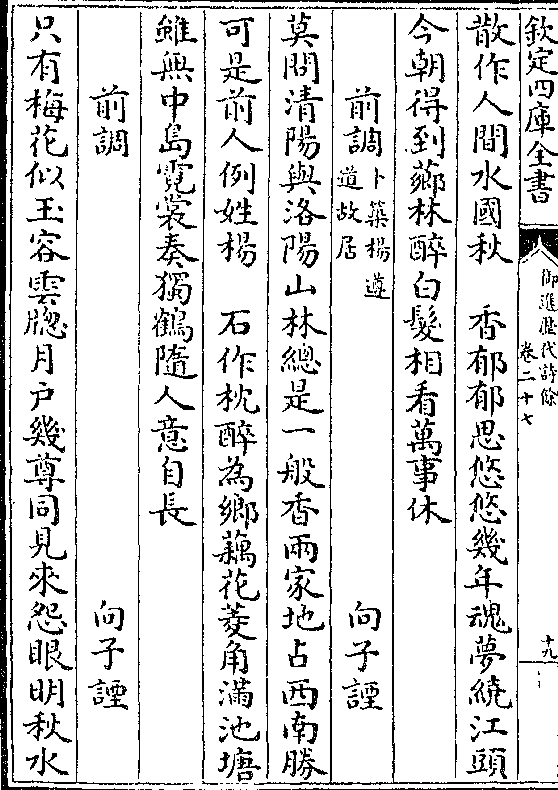 欽定四庫全書
御選歷代詩餘
卷二十七
十九
散作人間水國秋　香郁郁思悠悠幾年魂夢繞江頭
今朝得到薌林醉白髮相看萬事休
前調卜築楊遵道故居　向子諲
莫問清陽與洛陽山林總是一般香兩家地占西南勝
可是前人例姓楊　石作枕醉為鄉藕花菱角滿池塘
雖無中島霓裳奏獨鶴隨人意自長
前調　向子諲
只有梅花似玉容雲牕月戶幾尊同見來怨眼明秋水